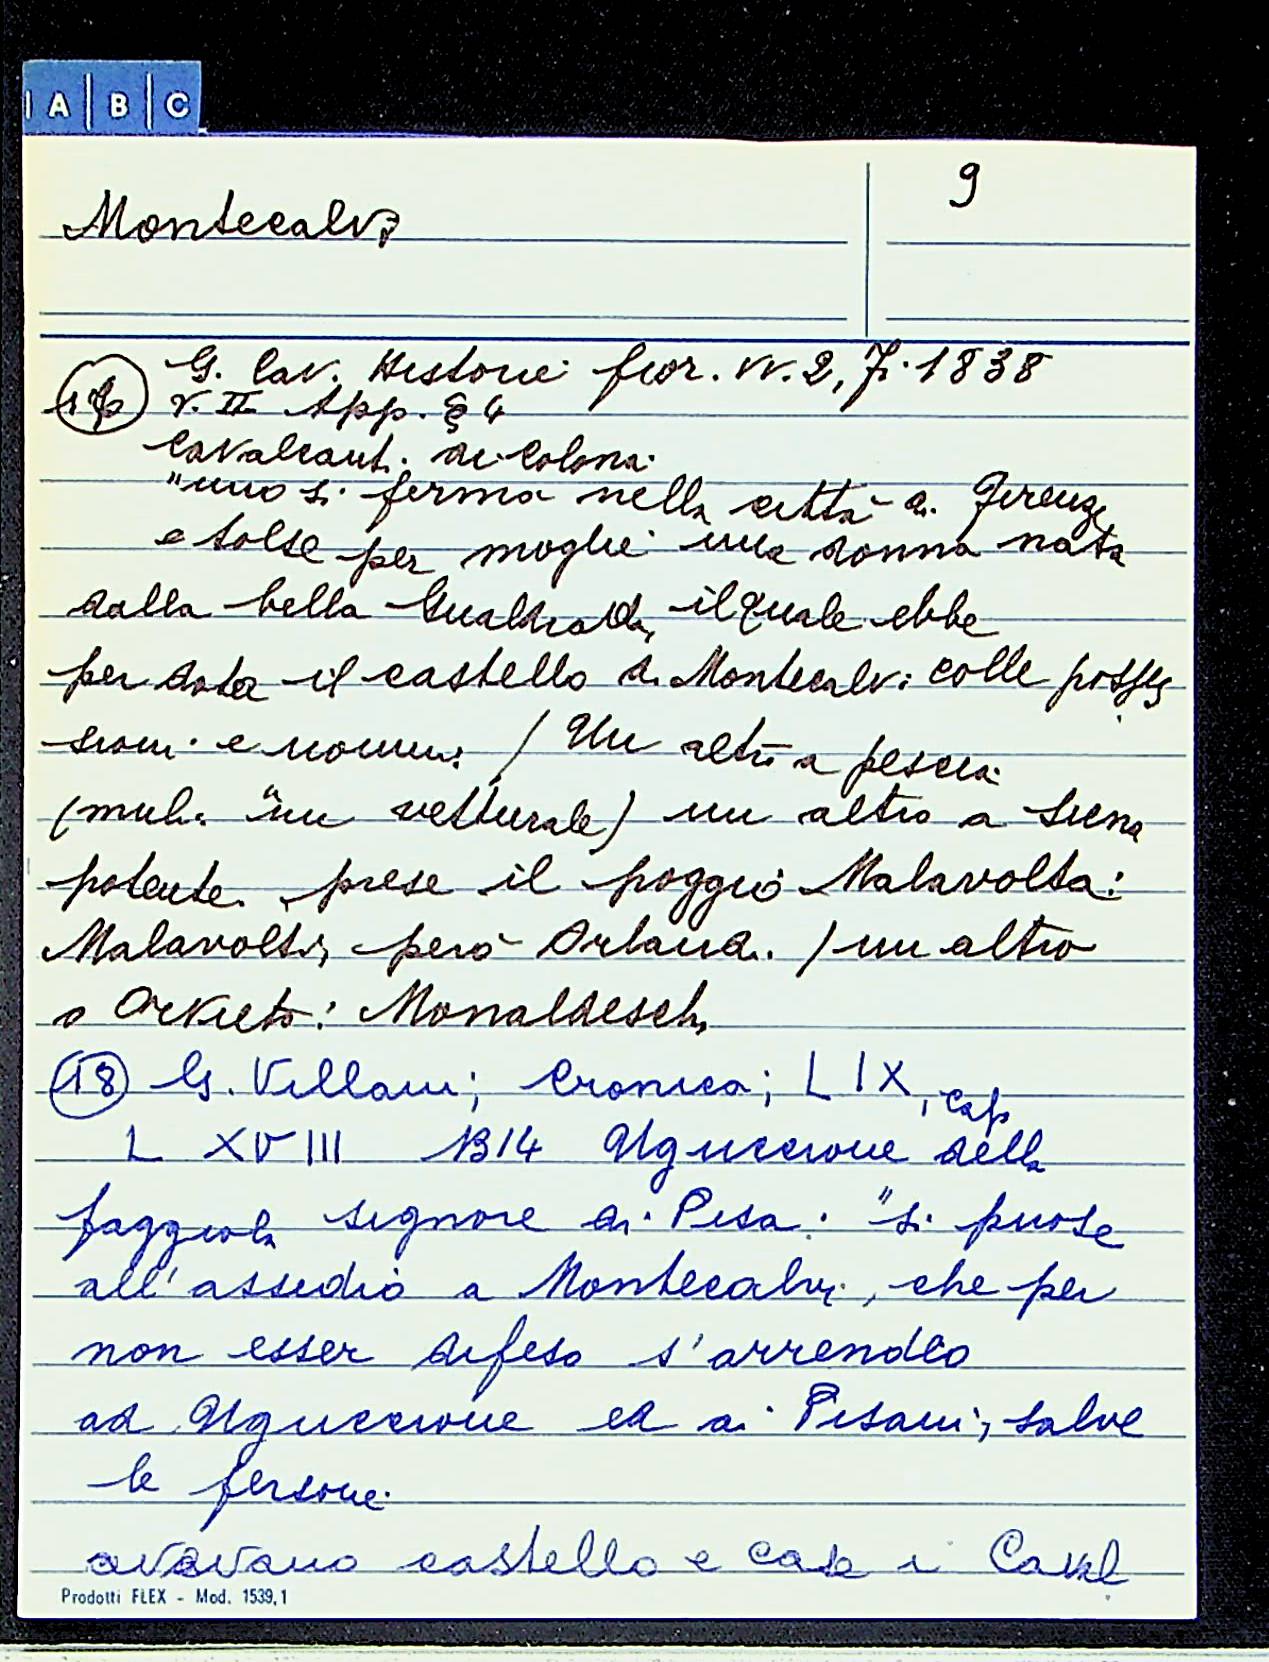 A B C
Montecalvi
9
G. Cav. Historie fior. vv. 2, Fi. 1838
v. II App. § 4
Cavalcanti. di Colonia
"uno si fermò nella città di Firenze
e tolse per moglie una donna nata
dalla bella Gualdrada, il quale ebbe
per dota il castello di Montecalvi colle posses
sioni e uomini / Un altro a Pescia
un vetturale) un altro a Siena
potente. prese il poggio Malavolta:
Malavolti, però Orlandi. / un altro
a Orvieto: Monaldeschi
18 G. Villani; Cronica; L IX, cap
L XVIII 1314 Uguccione della
faggiola signore di Pisa: "si puose
all'assedio a Montecalvi, che per
non esser difeso s'arrendéo
ad Uguccione ed ai Pisani, salve
le persone.
avevano castello e case i Caval
Prodotti FLEX - Mod. 1539,1